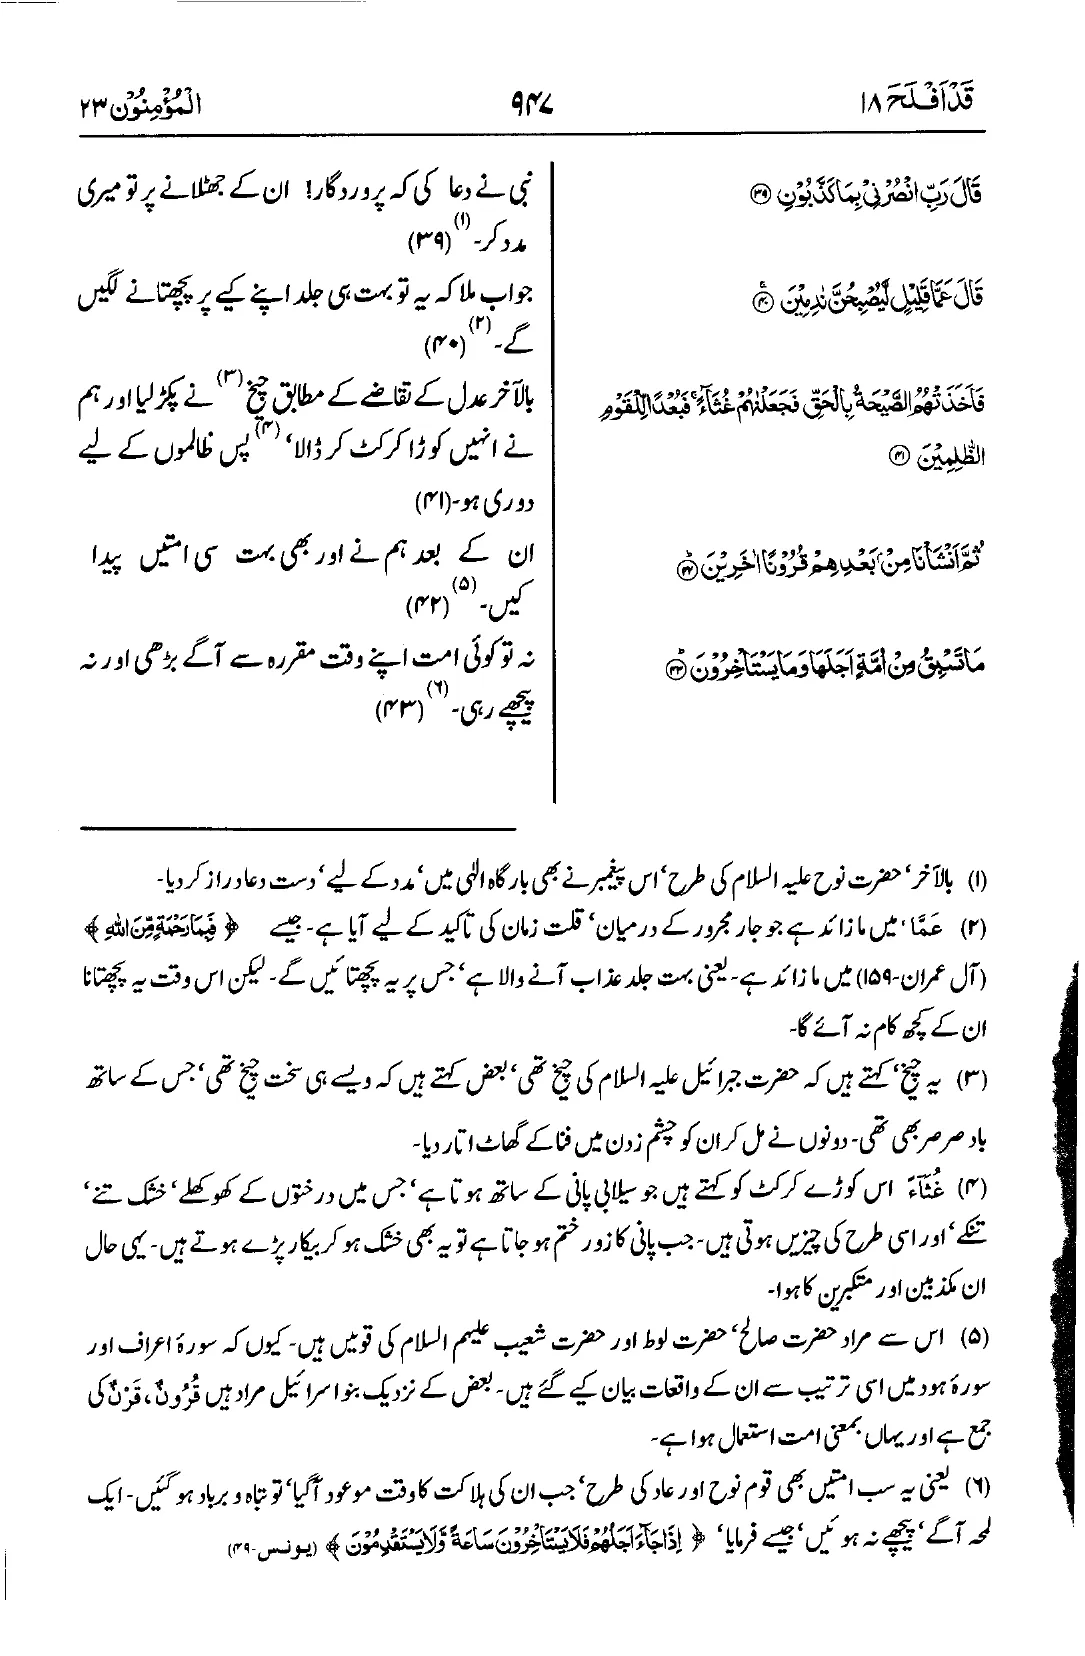 قَدْ اَفْلَحَ ۱۸
۹۴۷
الْمُؤْمِنُوْن ۲۳
قَالَ رَبِّ انْصُرْنِیْ بِمَا كَذَّبُوْنِ ۳۹
قَالَ عَمَّا قَلِيْلٍ لَّيُصْبِحُنَّ نٰدِمِيْنَ ۴۰
فَاَخَذَتْهُمُ الصَّيْحَةُ بِالْحَقِّ فَجَعَلْنٰهُمْ غُثَآءً ۚ فَبُعْدًا لِّلْقَوْمِ
الظّٰلِمِيْنَ ۴۱
ثُمَّ اَنْشَاْنَا مِنْۢ بَعْدِهِمْ قُرُوْنًا اٰخَرِيْنَ ۴۲
مَا تَسْبِقُ مِنْ اُمَّةٍ اَجَلَهَا وَمَا يَسْتَاْخِرُوْنَ ۴۳
نبی نے دعا کی کہ پروردگار! ان کے جھٹلانے پر تو میری
مدد کر۔(۱) (۳۹)
جواب ملا کہ یہ تو بہت ہی جلد اپنے کیے پر پچھتانے لگیں
گے۔(۲) (۴۰)
بالآخر عدل کے تقاضے کے مطابق چیخ(۳) نے پکڑ لیا اور ہم
نے انہیں کوڑا کرکٹ کر ڈالا،(۴) پس ظالموں کے لیے
دوری ہو۔(۴۱)
ان کے بعد ہم نے اور بھی بہت سی امتیں پیدا
کیں۔(۵) (۴۲)
نہ تو کوئی امت اپنے وقت مقررہ سے آگے بڑھی اور نہ
پیچھے رہی۔(۶) (۴۳)
(۱) بالآخر، حضرت نوح علیہ السلام کی طرح، اس پیغمبر نے بھی بارگاہ الٰہی میں، مدد کے لیے، دست دعا دراز کر دیا۔
(۲) عَمَّا، میں ما زائد ہے جو جار مجرور کے درمیان، قلت زمان کی تاکید کے لیے آیا ہے۔ جیسے ﴿ فَبِمَا رَحْمَةٍ مِّنَ اللهِ ﴾
(آل عمران۔۱۵۹) میں ما زائد ہے۔ یعنی بہت جلد عذاب آنے والا ہے، جس پر یہ پچھتائیں گے۔ لیکن اس وقت یہ پچھتانا
ان کے کچھ کام نہ آئے گا۔
(۳) یہ چیخ، کہتے ہیں کہ حضرت جبرائیل علیہ السلام کی چیخ تھی، بعض کہتے ہیں کہ ویسے ہی سخت چیخ تھی، جس کے ساتھ
باد صرصر بھی تھی۔ دونوں نے مل کر ان کو چشم زدن میں فنا کے گھاٹ اتار دیا۔
(۴) غُثَآءً اس کوڑے کرکٹ کو کہتے ہیں جو سیلابی پانی کے ساتھ ہوتا ہے، جس میں درختوں کے کھوکھلے، خشک تنے،
تنکے، اور اسی طرح کی چیزیں ہوتی ہیں۔ جب پانی کا زور ختم ہو جاتا ہے تو یہ بھی خشک ہو کر بیکار پڑے ہوتے ہیں۔ یہی حال
ان مکذبین اور متکبرین کا ہوا۔
(۵) اس سے مراد حضرت صالح، حضرت لوط اور حضرت شعیب علیہم السلام کی قومیں ہیں۔ کیوں کہ سورۂ اعراف اور
سورۂ ہود میں اسی ترتیب سے ان کے واقعات بیان کیے گئے ہیں۔ بعض کے نزدیک بنو اسرائیل مراد ہیں قُرُوْنٌ، قَرْنٌ کی
جمع ہے اور یہاں بمعنی امت استعمال ہوا ہے۔
(۶) یعنی یہ سب امتیں بھی قوم نوح اور عاد کی طرح، جب ان کی ہلاکت کا وقت موعود آگیا، تو تباہ و برباد ہو گئیں۔ ایک
لمحہ آگے، پیچھے نہ ہوئیں، جیسے فرمایا، ﴿ اِذَا جَآءَ اَجَلُهُمْ فَلَا يَسْتَاْخِرُوْنَ سَاعَةً وَّلَا يَسْتَقْدِمُوْنَ ﴾ (یونس۔۴۹)